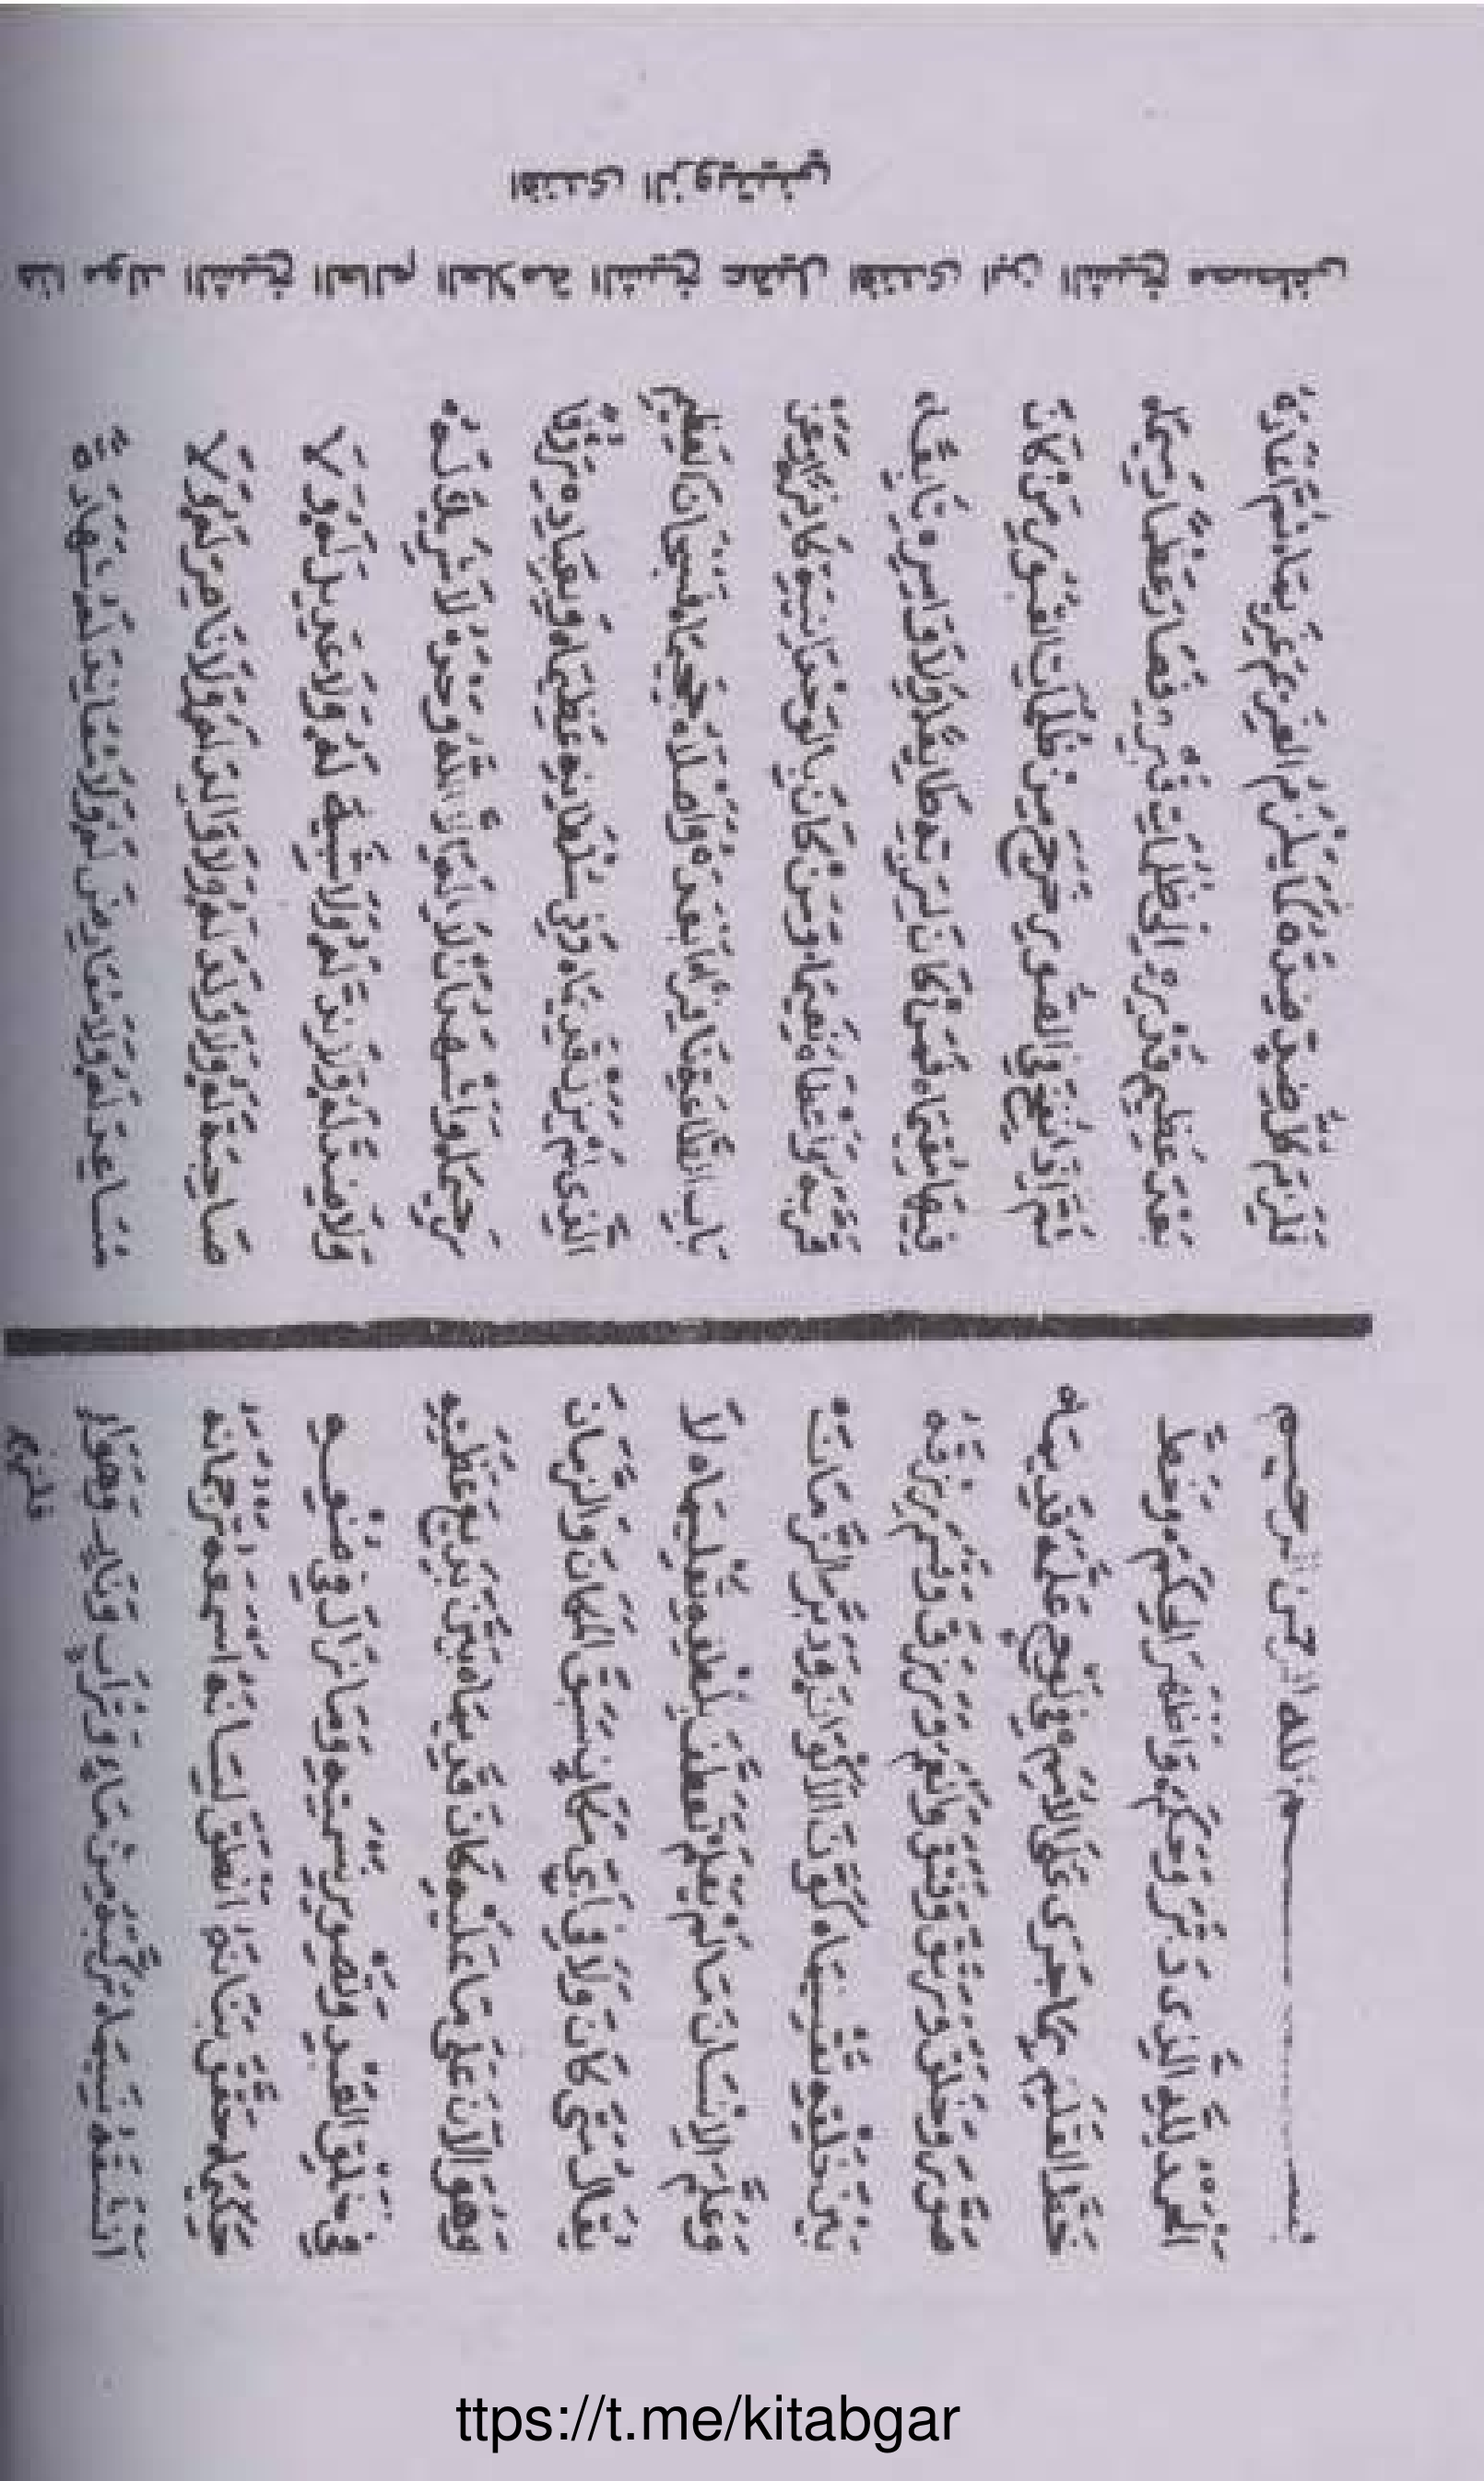 هذا مولد الشيخ العالم العلامة الشيخ عقيل افندى ابن الشيخ مصطفى
افندى الزويتينى
بسم الله الرحمن الرحيم
الحمد لله الذى دبر وحكم واظهر الحكم وخط
خط القلم بما جرى على الامم فى لوح علمه قديماه
صور وخلق وربق وفتق وانعم ورزق وقسم رزقه
بين خليقته تقسيماه كون الاكوان ودبر الزمان
وعلم الانسان ما لم يعلم تعطف بلطفه تعليماه لا
يقال متى كان ولا فى اى مكان سبق المكان والزمان
وهو الآن على ما عليه كان قديماه بين بديع عظمته
فى خلق العبد وتصوير بنيته وما زال فى صنعه
حكيماه حقق بنانه انطق لسانه اسمعه ترجمانه
انشقه نسيماه ركبه من ماء وتراب وهواء
فلزم
فلزم كل ضد ضده كما يلزم الغريم غريماه ثم اعاده
بعد عظيم قدره الى ظلمات قبره فصار عظاما رميماه
ثم اذا نفخ فى الصور خرج من ظلمات القبور من كان
فيها مقيماه فمن كان لربه طائعا ولاوامره تابعاه
قربه واعطاه نعيماه ومن كان بالوحدانية كافرا وعن
باب الطاعة نافرا ابعده واصلاه جحيماه فسبحان العظيم
الذى لم يزل قديماه وفى سلطانه عظيماه وبعباده رؤفا
رحيماه واشهد ان لا اله الا الله وحده لا شريك له
ولا ضد له ولا ند له ولا شبيه له ولا عديل له ولا
صاحبة له ولا ولد له ولا والد له ولا ناصر له ولا
مساعد له ولا معارض له ولا معاند له شهادة
ttps://t.me/kitabgar